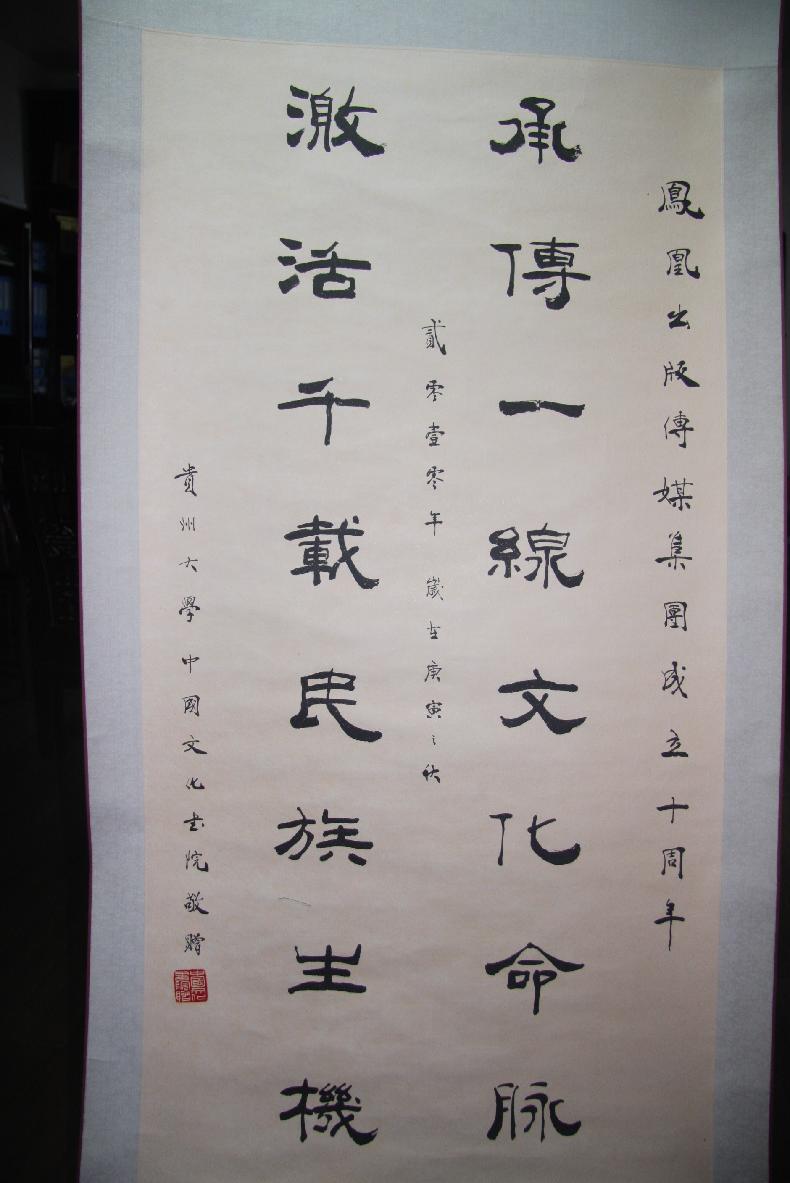 鳳凰出版傳媒集團成立十周年
承傳一線文化命脉
貳零壹零年 歲在庚寅之秋
激活千載民族生機
貴州大學中國文化書院敬贈